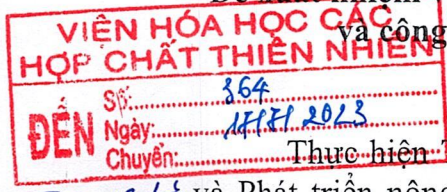 và công
VIỆN HÓA HỌC CÁC
HỢP CHẤT THIÊN NHIÊN
ĐẾN
Số:.......... 364
Ngày:.......... 17/7/2023
Chuyển:..........
Thực hiện
và Phát triển nôn